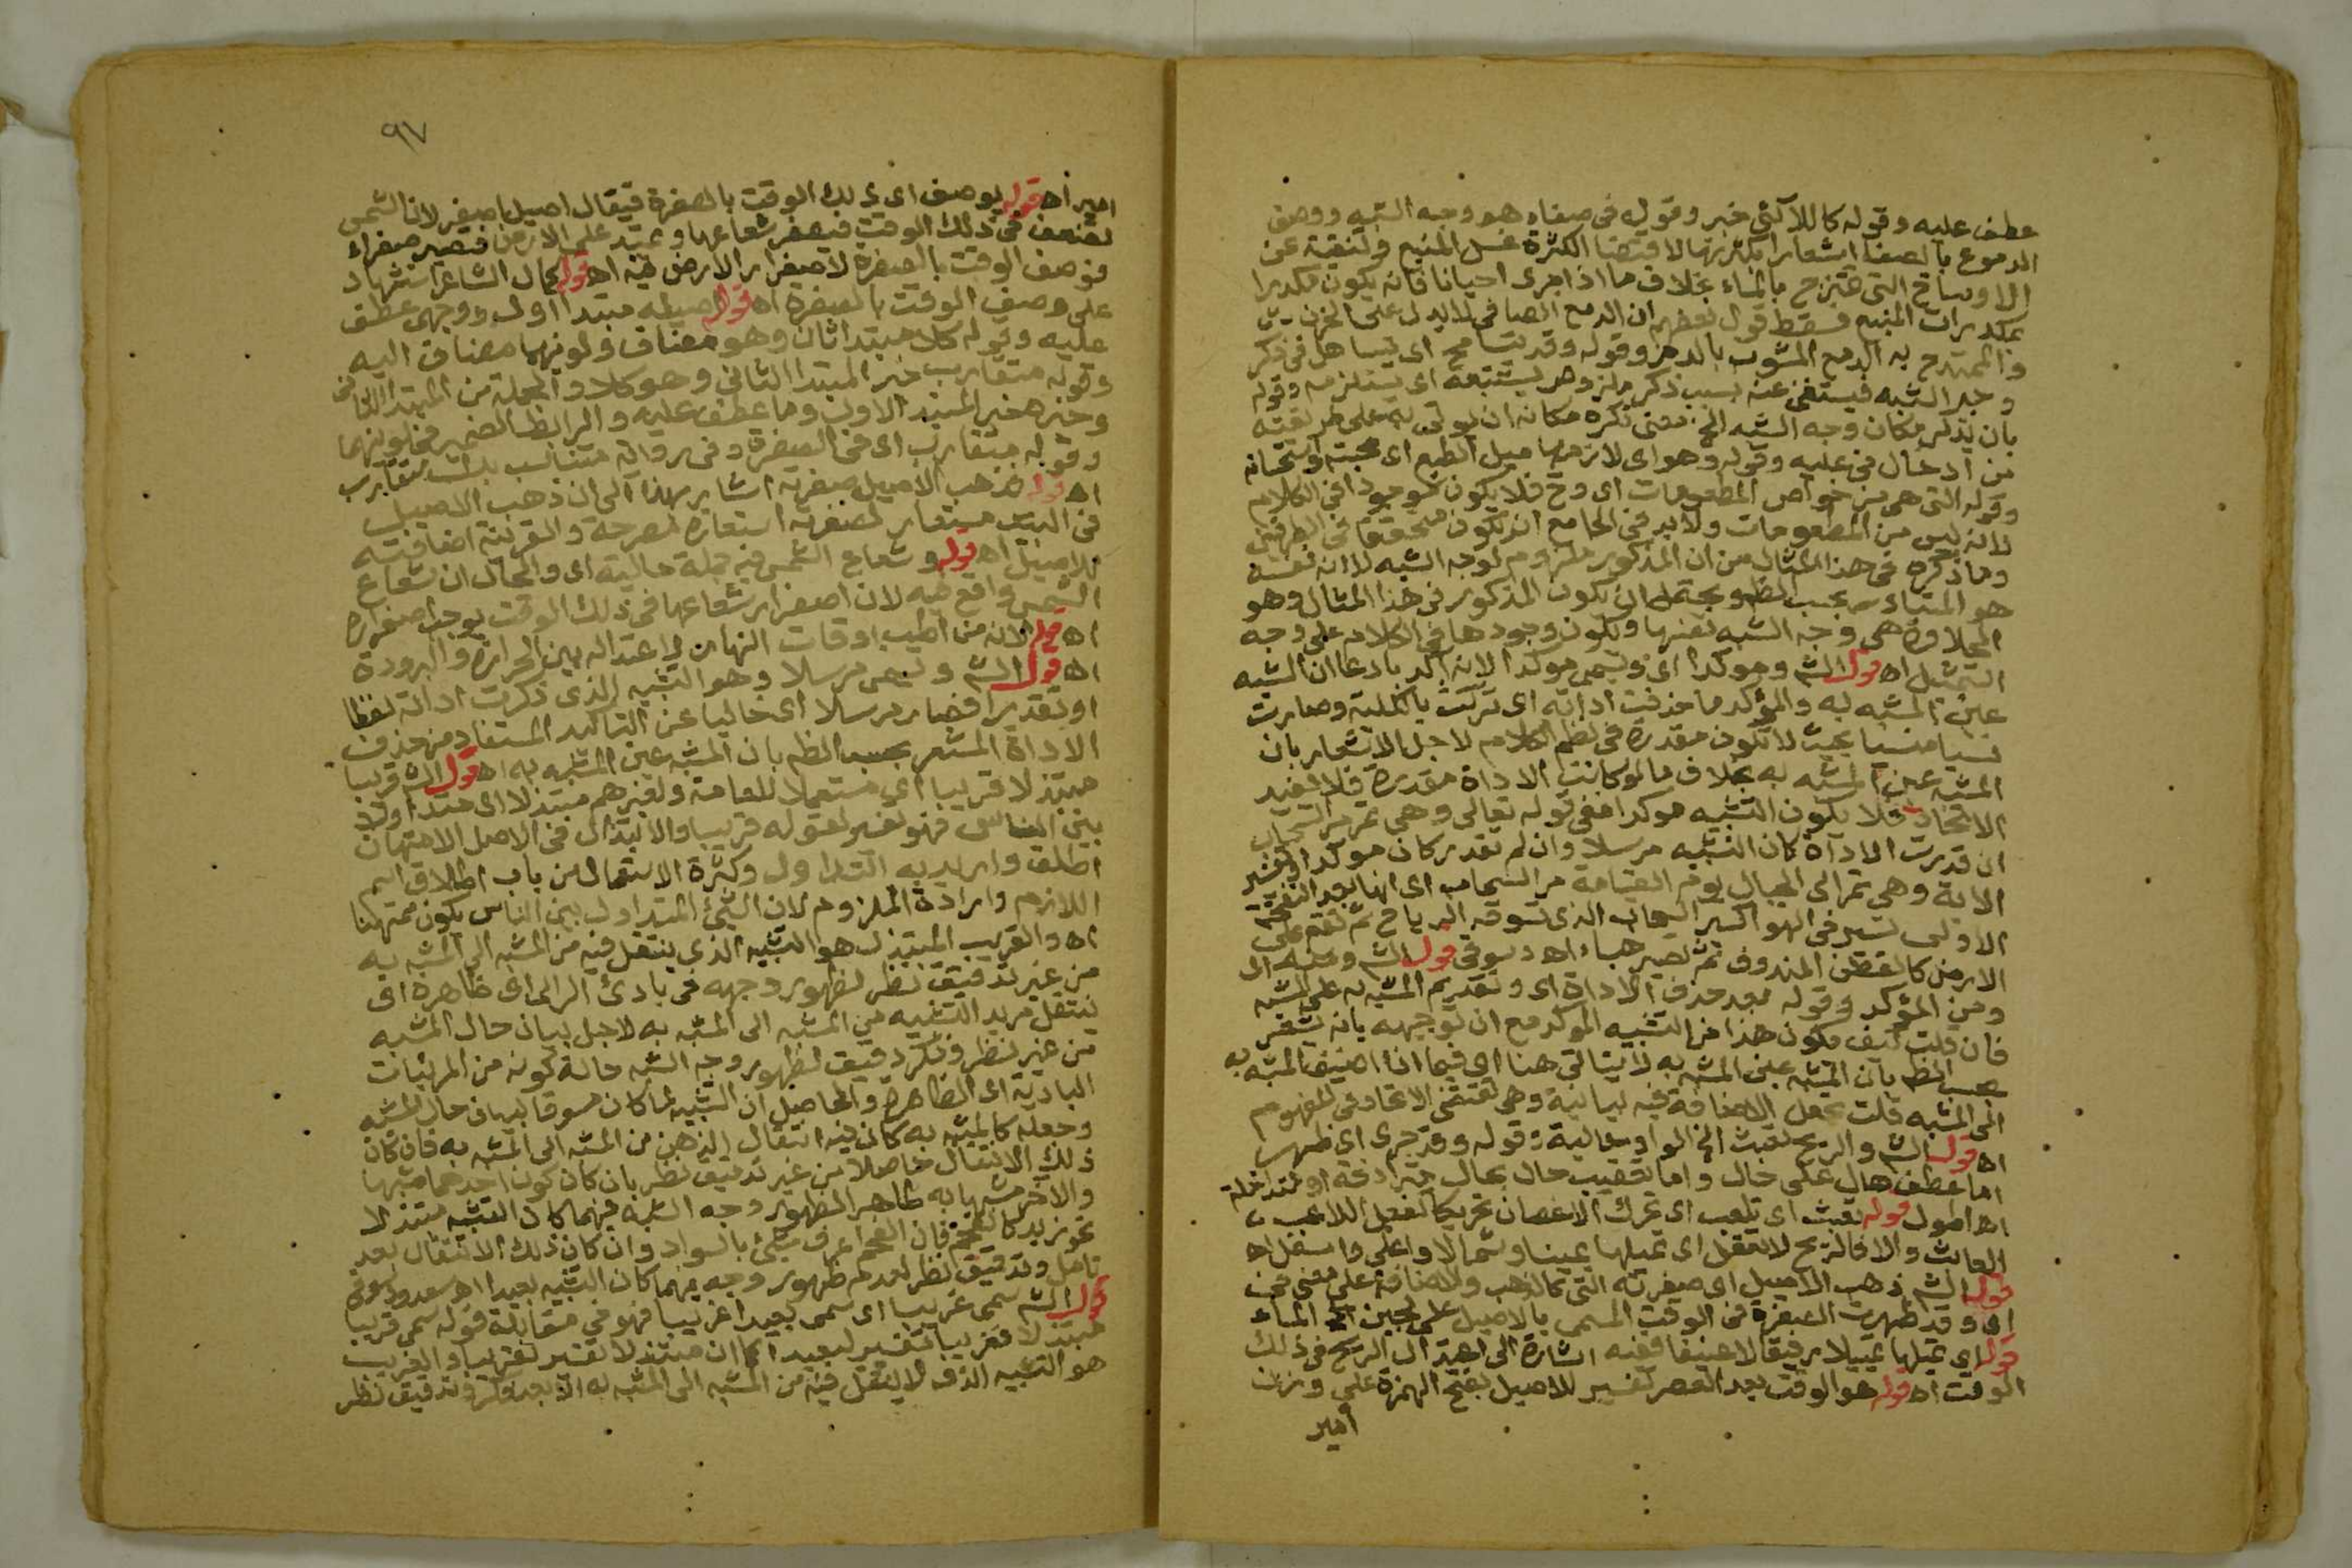 عطف عليه وقوله كاللآلئ خبر وقوله فى صفاء هو وجه الشبه ووصف
الدموع بالصفا اشعارا بكثرتها لاقتضا الكثرة غسل المنبع وتنقيته عن
الاوساخ التى تمتزج بالماء بخلاف ما اذا جرى احيانا فانه يكون مكدرا
بمكدرات المنبع فسقط قول بعضهم ان الدمع الصافى لا يدل على الحزن
والممتدح به الدمع المشوب بالدم وقوله وقد يتسامح اى يتساهل فى ذكر
وجه الشبه فيستغنى عنه بسبب ذكر ملزومه يستتبعه اى يستلزمه وقوله
بان يذكر مكان وجه الشبه الخ معنى ذكره مكانه ان يؤتى به على طريقته
من ادخال فى عليه وقوله وهو اى لازمها ميل الطبع اى محبته واستحسانه
وقوله التى هى من خواص المطعومات اى وح فلا يكون موجودا فى الكلام
لانه ليس من المطعومات ولابد فى الجامع ان يكون متحققا فى الطرفين
وما ذكره فى هذا المثال من ان المذكور ملزوم لوجه الشبه لا انه نفسه
هو المتبادر بحسب الظ ويحتمل ان يكون المذكور فى هذا المثال وهو
الحلاوة هى وجه الشبه بعينها ويكون وجودها فى الكلام على وجه
التخييل اه قول الش وموكدا اى ويسمى موكدا لانه اكد بادعا ان المشبه
عين المشبه به والمؤكد ما حذفت اداته اى تركت بالكلية وصارت
نسيا منسيا بحيث لا تكون مقدرة فى نظم الكلام لاجل الاشعار بان
المشبه عين المشبه به بخلاف ما لو كانت الاداة مقدرة فلا يفيد
الاتحاد فلا يكون التشبيه موكدا ففى قوله تعالى وهى تمر مر السحاب
ان قدرت الاداة كان التشبيه مرسلا وان لم تقدر كان موكدا وتفسير
الاية وهى تمر الى الجبال يوم القيامة مر السحاب اى انها بعد النفخة
الاولى تسير فى الهوا كسير السحاب الذى تسوقه الرياح ثم تقع على
الارض كالقطن المندوف ثم تصير هباء اه دسوقى قول الش ومنه اى
ومن المؤكد وقوله بعد حذف الاداة اى وتقديم المشبه به على المشبه
فان قلت كيف يكون هذا من التشبيه المؤكد مع ان توجيهه بانه يشعر
بحسب الظ بان المشبه عين المشبه به لا يتاتى هنا اى فيما اذا اضيف المشبه به
الى المشبه قلت تجعل الاضافة فيه بيانية وهى تقتضى الاتحاد فى المفهوم
اه قول الش والريح تعبث الخ الواو حالية وقوله وقد جرى اى ظهر
اما عطف حال على حال واما تعقيب حال بحال مترادفة او متداخلة
اه اطول قوله تعبث اى تلعب اى تحرك الاغصان تحريكا كفعل اللاعب
العابث والا فالريح لا تعقل اى تميلها يمينا وشمالا واعلى واسفل اه
قول الش ذهب الاصيل اى صفرته التى كالذهب والاضافة على معنى فى
اى وقد ظهرت الصفرة فى الوقت المسمى بالاصيل على لجين الماء
قوله اى تميلها تمييلا رفيقا لا عنيفا ففيه اشارة الى اعتدال الريح فى ذلك
الوقت اه قوله هو الوقت بعد العصر تفسير للاصيل بفتح الهمزة على وزن
امير
٩٧
امير اه قوله يوصف اى ذلك الوقت بالصفرة فيقال اصيل اصفر لان الشمس
تضعف فى ذلك الوقت فيصفر شعاعها ويمتد على الارض فتصير صفراء
فوصف الوقت بالصفرة لاصفرار الارض فيه اه قوله كمال الشاعر استشهاد
على وصف الوقت بالصفرة اه قوله اصيله مبتدا اول ووجهى عطف
عليه وقوله كلا مبتدا ثان وهو مضاف ولونيهما مضاف اليه
وقوله متقارب خبر المبتدا الثانى وهو كلا والجملة من المبتدا الثانى
وخبره خبر المبتدا الاول وما عطف عليه والرابط الضمير فى لونيهما
وقوله متقارب اى فى الصفرة وفى رواية متناسب بدل متقارب
اه قوله فذهب الاصيل صفرته اشار بهذا الى ان ذهب الاصيل
فى البيت مستعار لصفرته استعارة مصرحة والقرينة اضافته
للاصيل اه قوله وشعاع الشمس فيه جملة حالية اى والحال ان شعاع
الشمس واقع فيه لان اصفرار شعاعها فى ذلك الوقت يوجب اصفراره
اه قوله لانه من اطيب اوقات النهار لاعتداله بين الحرارة والبرودة
اه قول الش ويسمى مرسلا وهو التشبيه الذى ذكرت اداته لفظا
او تقديرا فصار مرسلا اى خاليا عن التاكيد المستفاد من حذف
الاداة المشعر بحسب الظ بان المشبه عين المشبه به اه قول الش قريبا
مبتذلا قريبا اى مستعملا للعامة ولغيرهم مبتذلا اى متداولا
بين الناس فهو تفسير لقوله قريبا والابتذال فى الاصل الامتهان
اطلق واريد به التداول وكثرة الاستعمال من باب اطلاق اسم
اللازم وارادة الملزوم لان الشيئ المتداول بين الناس يكون ممتهنا
اه والقريب المبتذل هو التشبيه الذى ينتقل فيه من المشبه الى المشبه به
من غير تدقيق نظر لظهور وجهه فى بادئ الراى اى ظاهره اى
ينتقل مريد التشبيه من المشبه الى المشبه به لاجل بيان حال المشبه
من غير نظر وفكر دقيق لظهور وجه الشبه حالة كونه من المرئيات
البادية اى الظاهرة والحاصل ان التشبيه لما كان مسوقا لبيان حال المشبه
وجعله كالمشبه به كان فيه انتقال الذهن من المشبه الى المشبه به فان كان
ذلك الانتقال حاصلا من غير تدقيق نظر بان كان كون احدهما مشبها
والاخر مشبها به ظاهرا لظهور وجه الشبه فيهما كان التشبيه مبتذلا
نحو زيد كالفحم فان الفحم اعرف شيئ بالسواد وان كان ذلك الانتقال بعد
تامل وتدقيق نظر لعدم ظهور وجه فيهما كان التشبيه بعيدا اه سعد ودسوقى
قول الش سمى غريبا اى سمى بعيدا غريبا فهو فى مقابلة قوله سمى قريبا
مبتذلا فغريبا تفسير لبعيد كما ان مبتذلا تفسير لقريبا والغريب
هو التشبيه الذى لا ينتقل فيه من المشبه الى المشبه به الا بعد فكر وتدقيق نظر